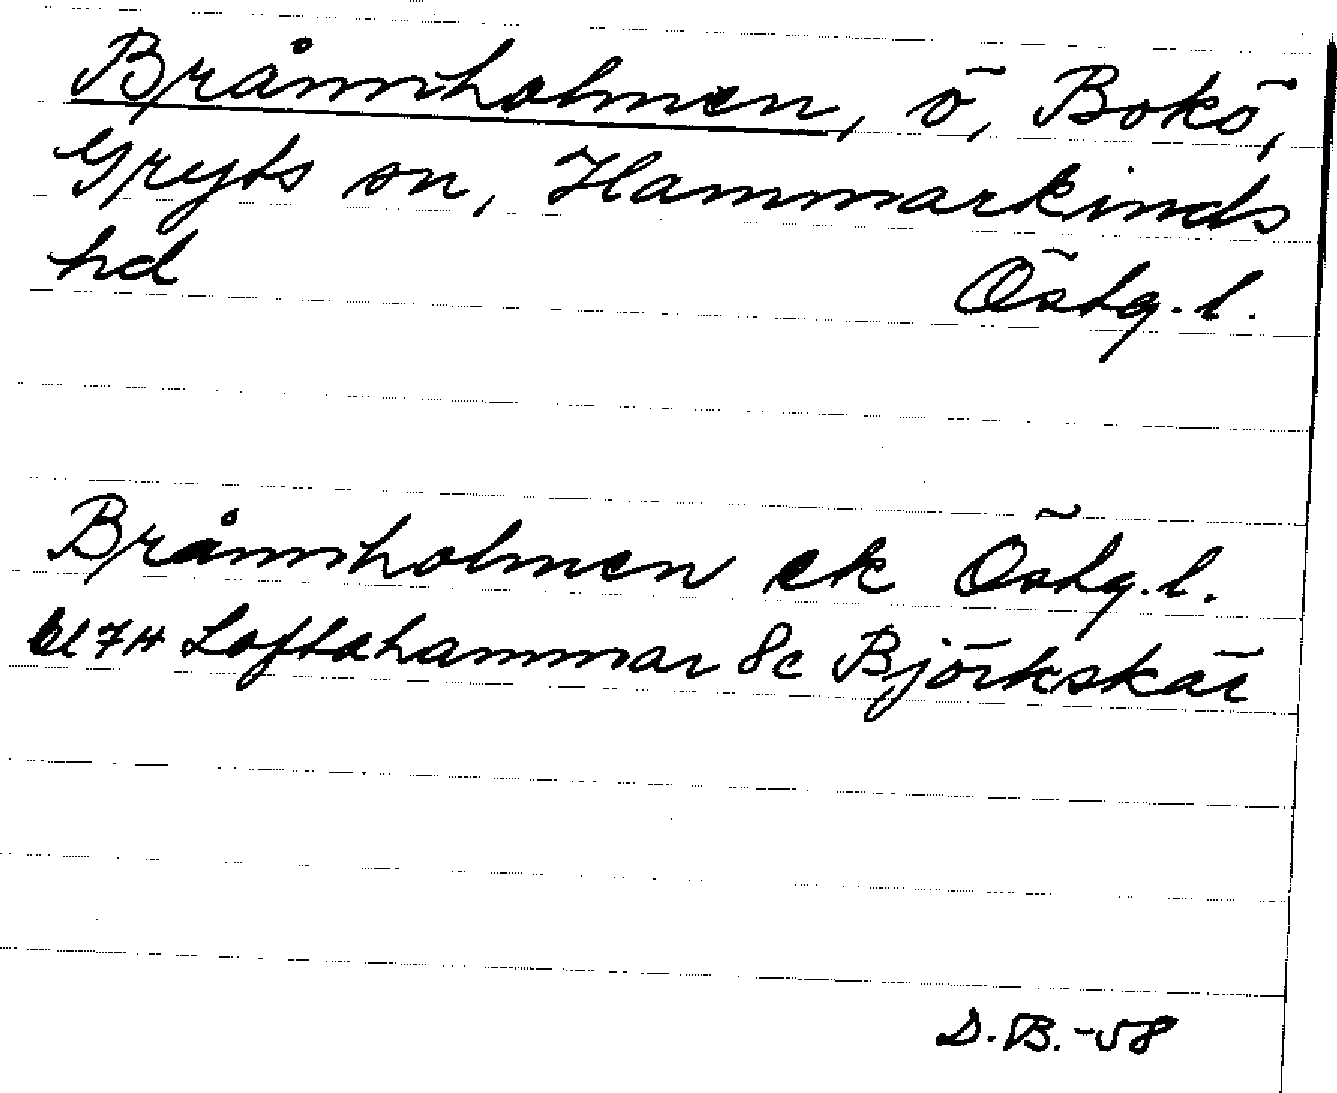 Brånnholmen, ö, Bokö,
Gryts sn, Hammarkinds
hd Östg. l.
Brånnholmen ek Östg. l.
bl 7H Loftahammar 8c Björkskär
D.B.-58